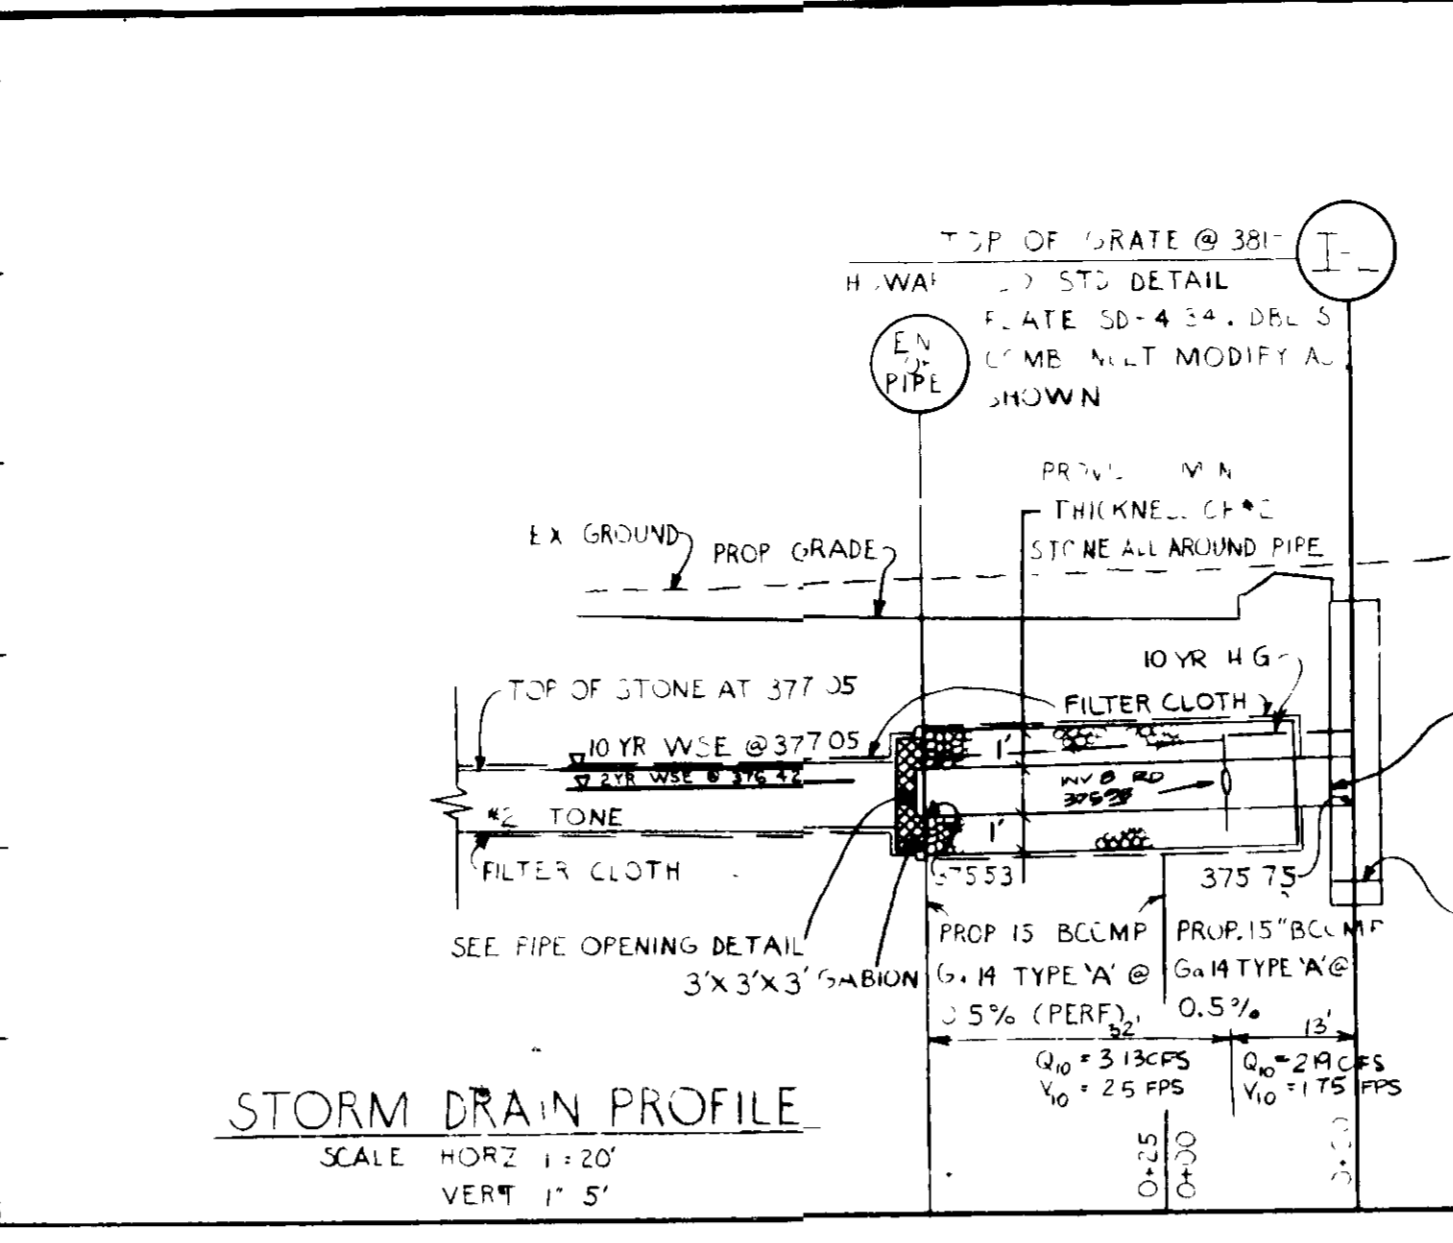 TOP OF GRATE @ 381
I-
STD DETAIL
SD-4.34. DBL S
COMB INLET MODIFY AS
SHOWN
PIPE
THICKNESS OF #2
STONE ALL AROUND PIPE
EX GROUND
PROP GRADE
10 YR H G
TOP OF STONE AT 377 05
FILTER CLOTH
10 YR WSE @ 377 05
2YR WSE @ 376 42
1'
INV 8 RD
#2 TONE
1'
FILTER CLOTH
37553
375 75
SEE PIPE OPENING DETAIL
3'X 3'X 3' GABION
PROP 15 BCCMP
Ga 14 TYPE 'A' @
0 5% (PERF)
PROP. 15" BCCMP
Ga 14 TYPE 'A' @
0.5%
32'
13'
Q10 = 3 13CFS
V10 = 25 FPS
Q10 = 219 CFS
V10 = 175 FPS
0+25
0+00
STORM DRAIN PROFILE
SCALE HORZ 1 = 20'
VERT 1" 5'